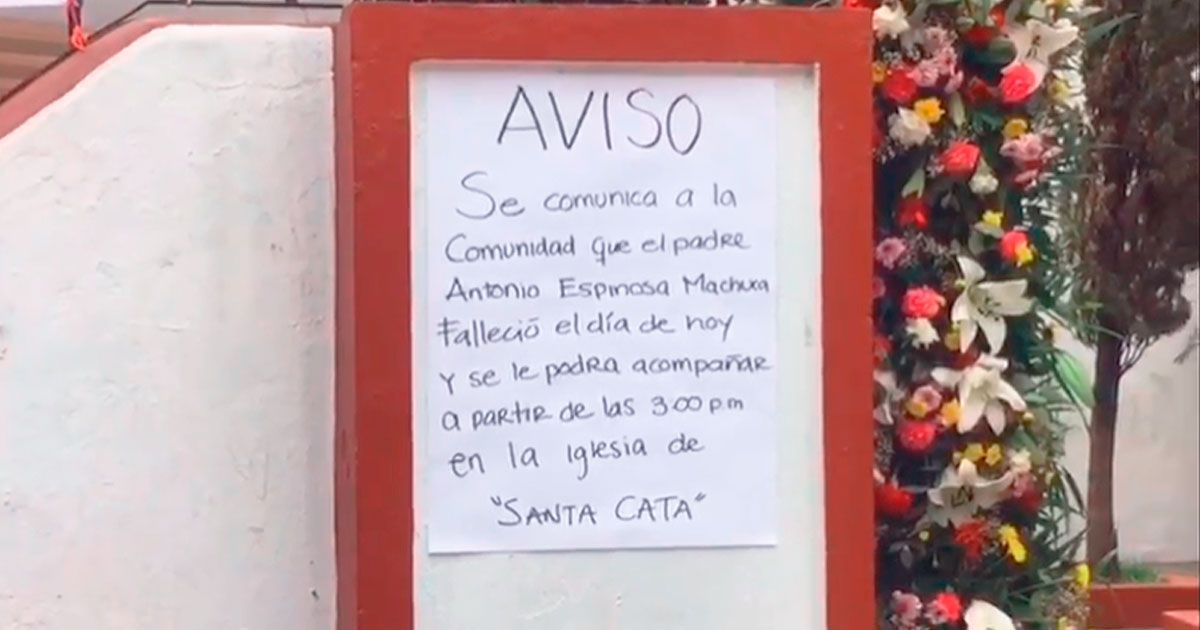 AVISO
Se comunica a la
Comunidad que el padre
Antonio Espinosa Machuca
Falleció el día de hoy
y se le podra acompañar
a partir de las 3:00 p.m
en la iglesia de
"SANTA CATA"